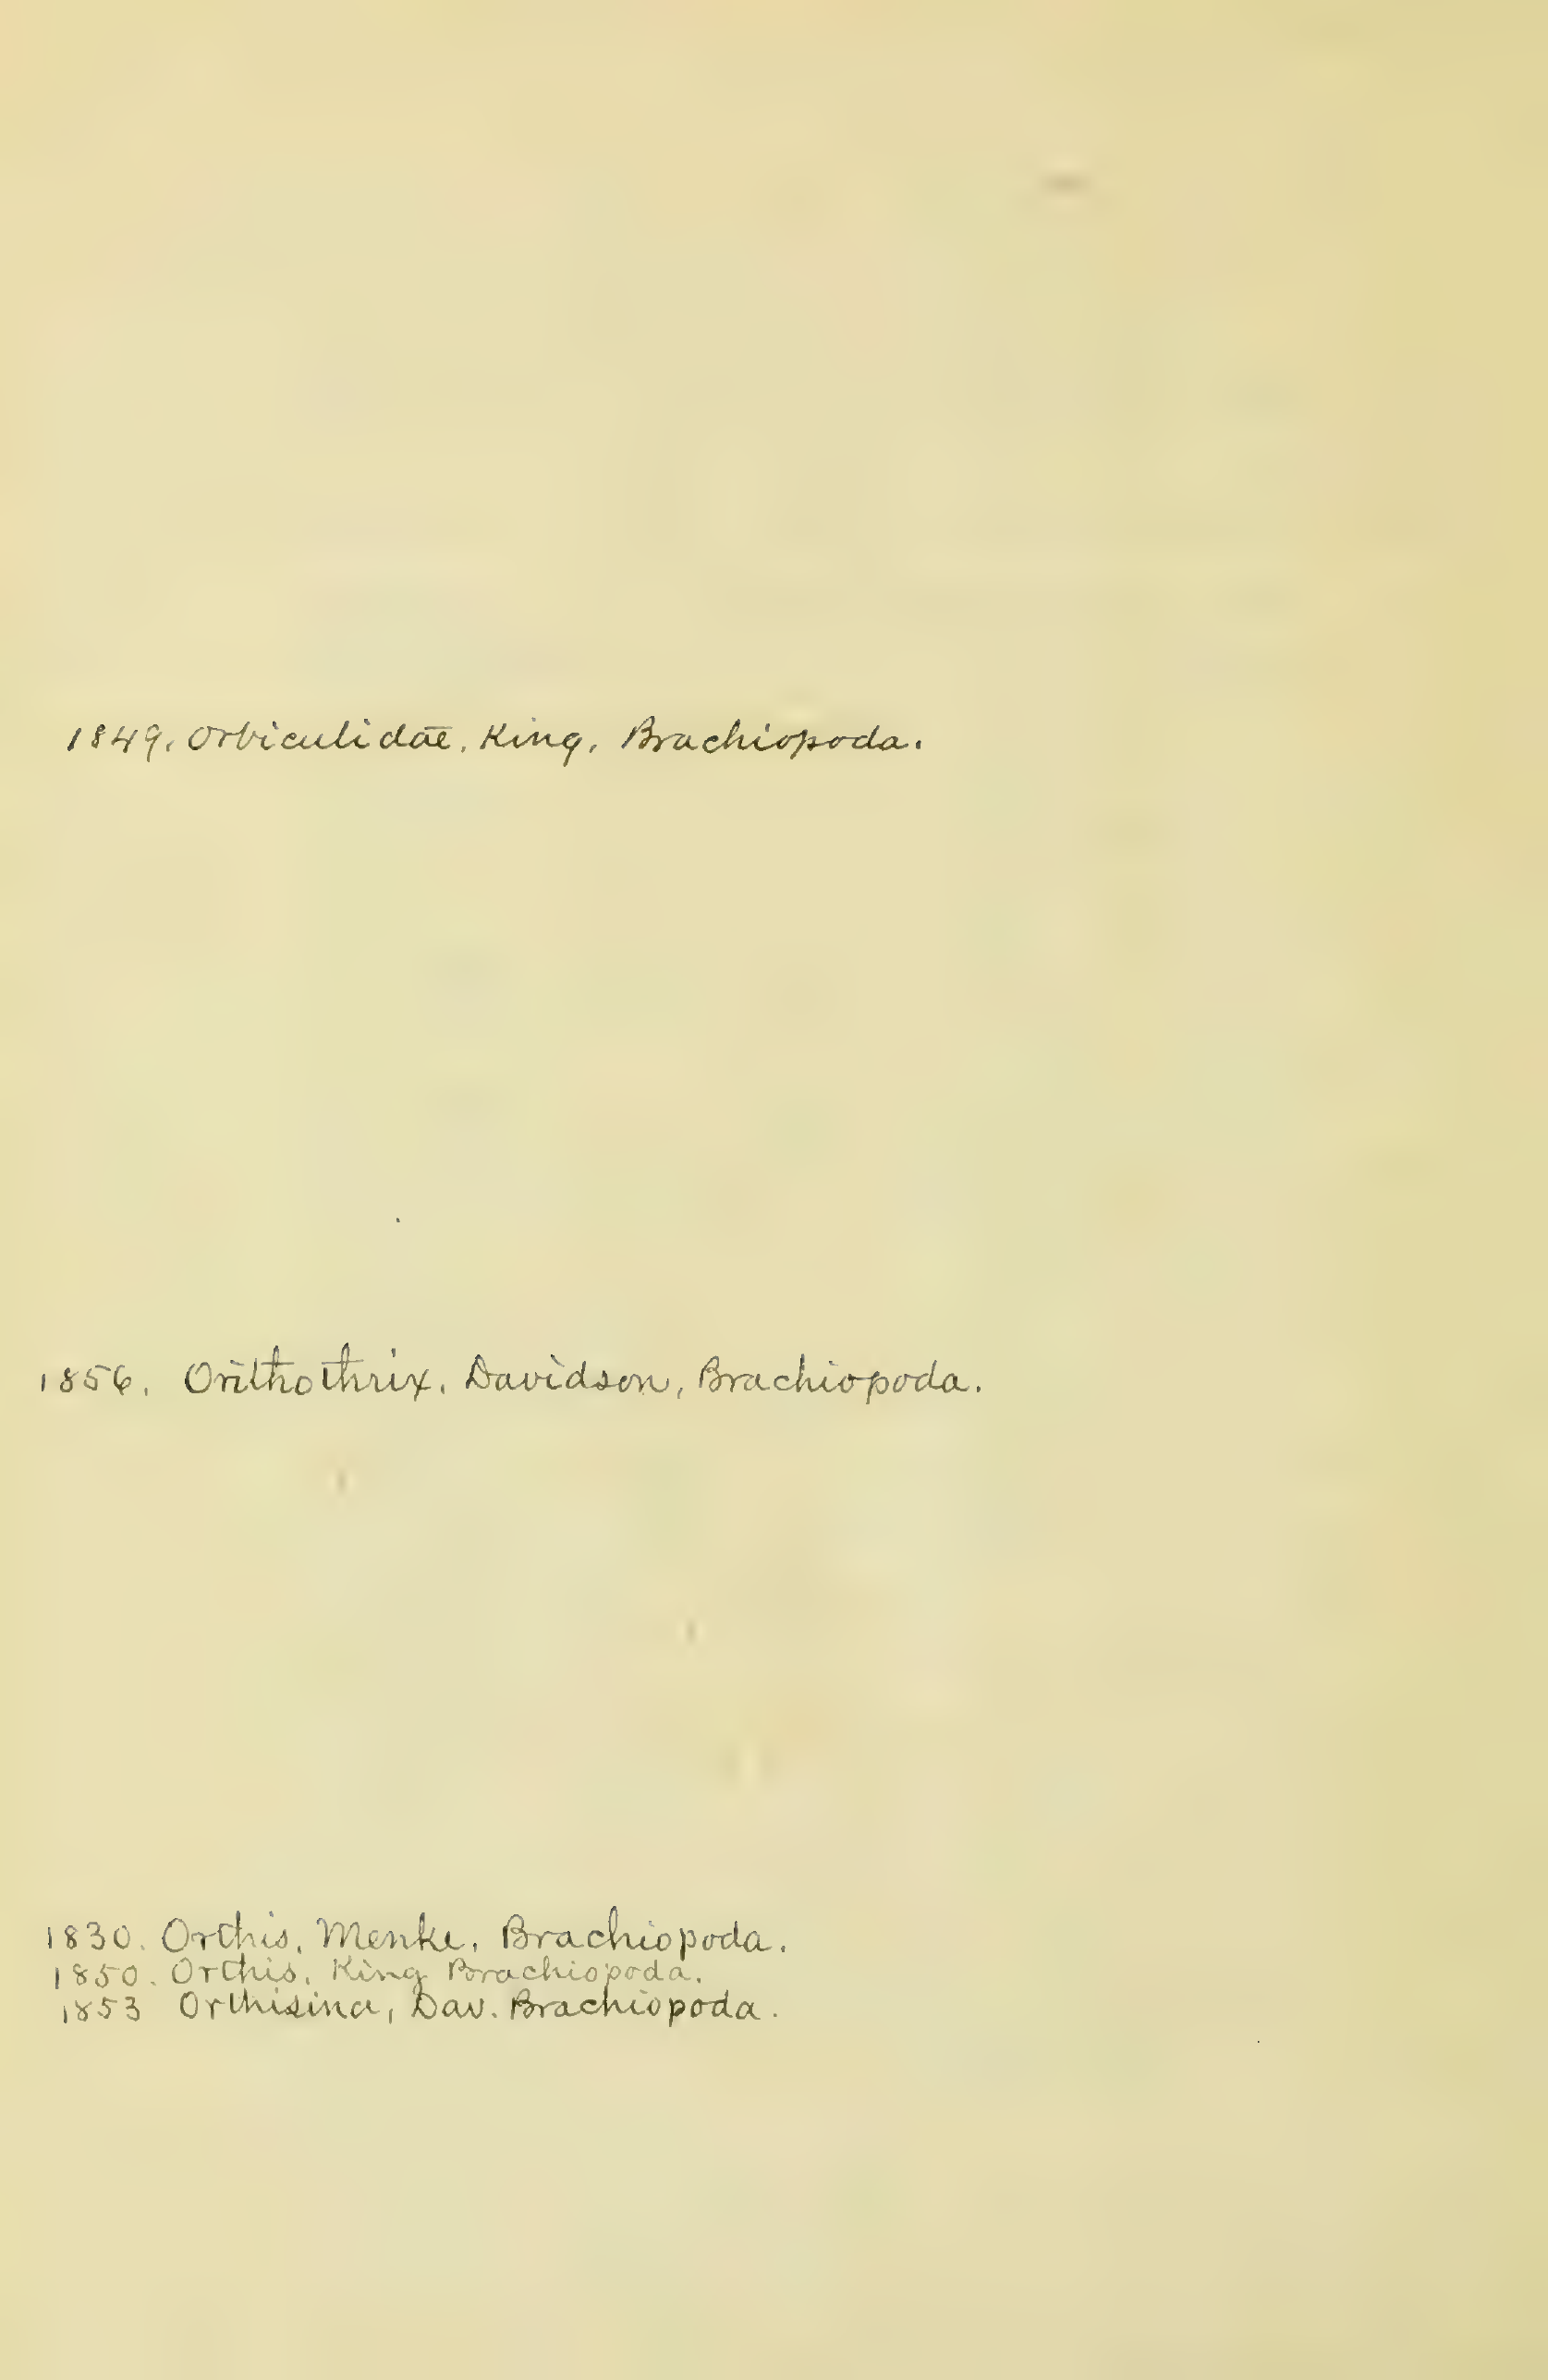 1849. Orbiculidae. King. Brachiopoda.
1856. Orithothrix. Davidson, Brachiopoda.
1830. Orthis. Menke. Brachiopoda.
1850. Orthis. King Brachiopoda.
1853 Orthisina, Dav. Brachiopoda.